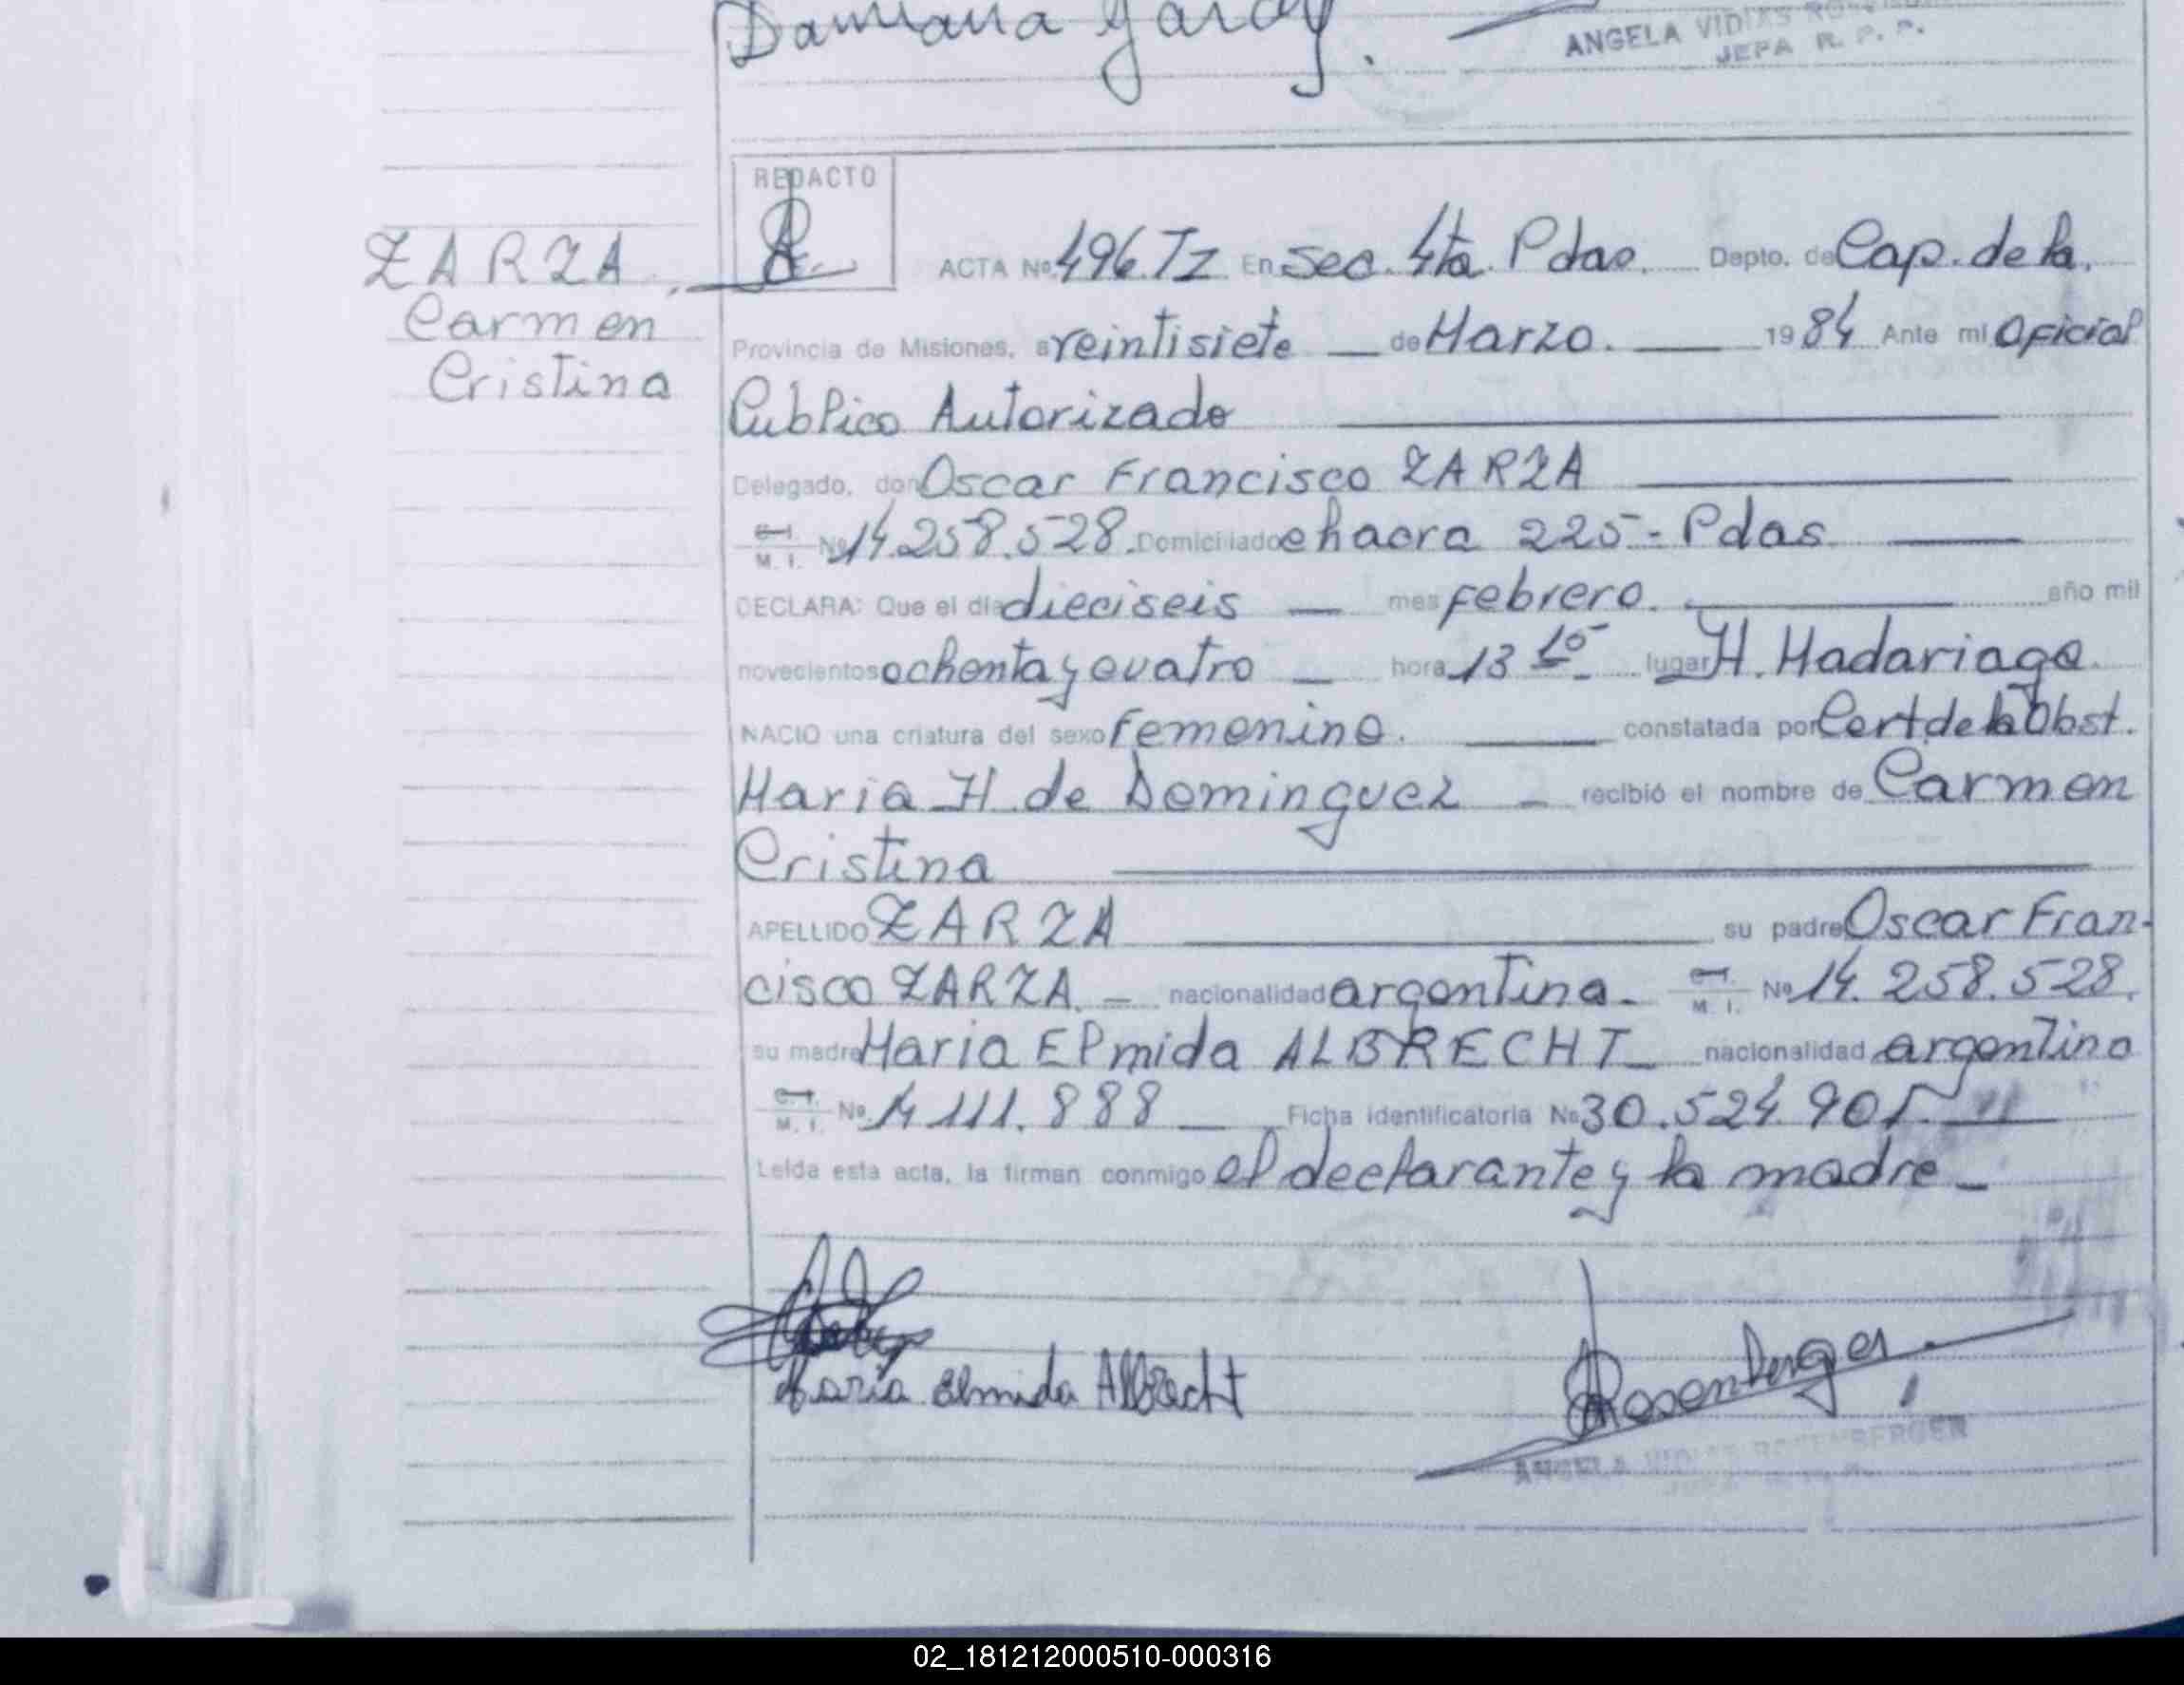 Damiana Garay.
ANGELA VIDIAS
JEFA R. P. P.
REDACTO
ZARZA
Carmen
Cristina
ACTA Nº 496 Tz En Sec. 4ta. Pdas. Depto. de Cap. de la
Provincia de Misiones, a veintisiete de Marzo. 1984 Ante mi Oficial
Publico Autorizado
Delegado, don Oscar Francisco ZARZA
C.I. M. I. Nº 14.258.528. Domiciliado chacra 225 - Pdas.
DECLARA: Que el día dieciseis mes febrero. año mil
novecientos ochenta y cuatro hora 13 10 lugar H. Madariaga
NACIO una criatura del sexo femenino. constatada por Cert de la Obst.
Maria H. de Dominguez recibió el nombre de Carmen
Cristina
APELLIDO ZARZA su padre Oscar Fran-
cisco ZARZA. nacionalidad argentina. C.I. M. I. Nº 14.258.528.
su madre Maria Elmida ALBRECHT nacionalidad argentina
C.I. M. I. Nº 14.111.888 Ficha identificatoria Nº 30.524.901
Leída esta acta, la firman conmigo el declarante y la madre
María Elmida Albrecht
Rosenberger
ANGELA VIDIAS ROSENBERGER
02_181212000510-000316